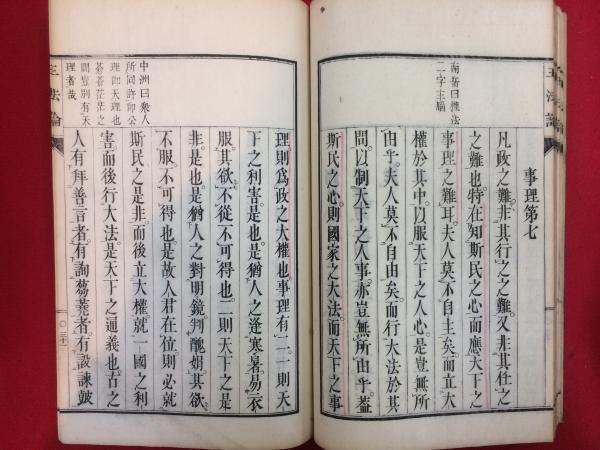 南皐曰權法
二字主腦
事理第七
凡政之難、非其行之之難、又非其仕之
之難也、特在知斯民之心、而應天下之
事理之難耳、夫人莫不自主矣、而立大
權於其中、以服天下之人心、是豈無所
由乎、夫人莫不自由矣、而行大法於其
間、以制天下之人事、亦豈無所由乎、蓋
斯民之心、則國家之大法、而天下之事
中洲曰衆人
所同許即公
理即天理也
蒼蒼茫茫之
間豈別有天
理者哉
理、則爲政之大權也、事理有二、一則天
下之利害是也、是猶人之逢寒暑易衣
服、其欲不從、不可得也、一則天下之是
非是也、是猶人之對明鏡判醜娟、其欲
不服、不可得也、是故人君在位、則必就
斯民之是非、而後立大權、就一國之利
害、而後行大法、是天下之通義也、古之
人有拜善言者、有詢蒭蕘者、有設諫鼓
王法論
〇三十